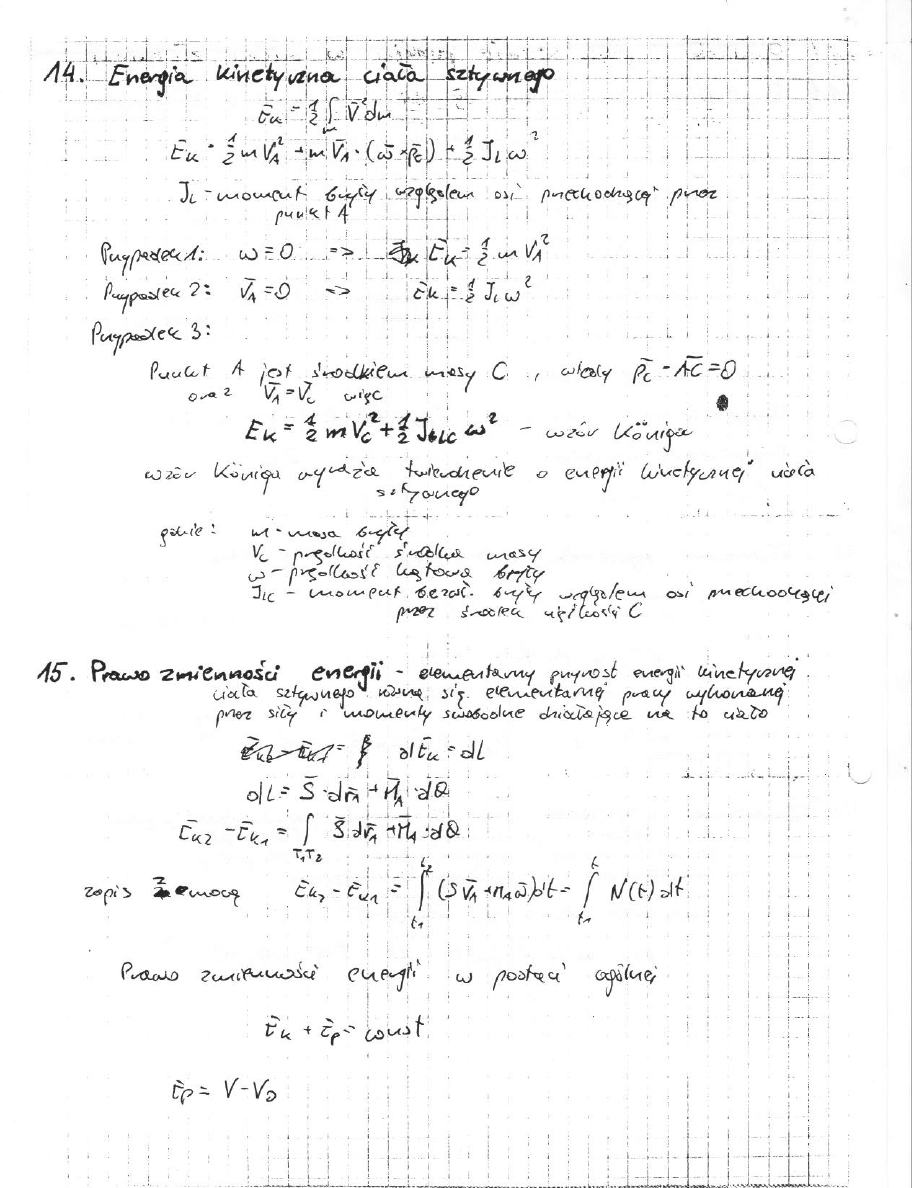 14. Energia kinetyczna ciała sztywnego
Ēk = 1/2 ∫m V̄² dm
Ēk = 1/2 m VA² + m V̄A · (ω̄ × ρ̄c) + 1/2 JL ω²
JL - moment bryły względem osi przechodzącej przez
punkt A
Przypadek 1: ω = 0 => Ēk = 1/2 m VA²
Przypadek 2: V̄A = 0 => Ēk = 1/2 JL ω²
Przypadek 3:
Punkt A jest środkiem masy C, wtedy ρ̄c - AC̄ = 0
oraz V̄A = V̄c więc
Ek = 1/2 m Vc² + 1/2 JLC ω² - wzór Königa
wzór Königa wyraża twierdzenie o energii kinetycznej ciała
sztywnego
gdzie: m - masa bryły
Vc - prędkość środka masy
ω - prędkość kątowa bryły
JLC - moment bezwł. bryły względem osi przechodzącej
przez środek ciężkości C
15. Prawo zmienności energii - elementarny przyrost energii kinetycznej
ciała sztywnego równa się elementarnej pracy wykonanej
przez siły i momenty swobodne działające na to ciało
dĒk = dL
dL = S̄ · dr̄A + M̄A · dΘ̄
Ēk2 - Ēk1 = ∫T1T2 S̄ dr̄A + M̄A · dΘ̄
zapis z mocą Ēk2 - Ēk1 = ∫t1 t2 (S V̄A + MA ω̄) dt = ∫t1 t N(t) dt
Prawo zmienności energii w postaci ogólnej
Ēk + Ēp = const
Ēp = V - V0